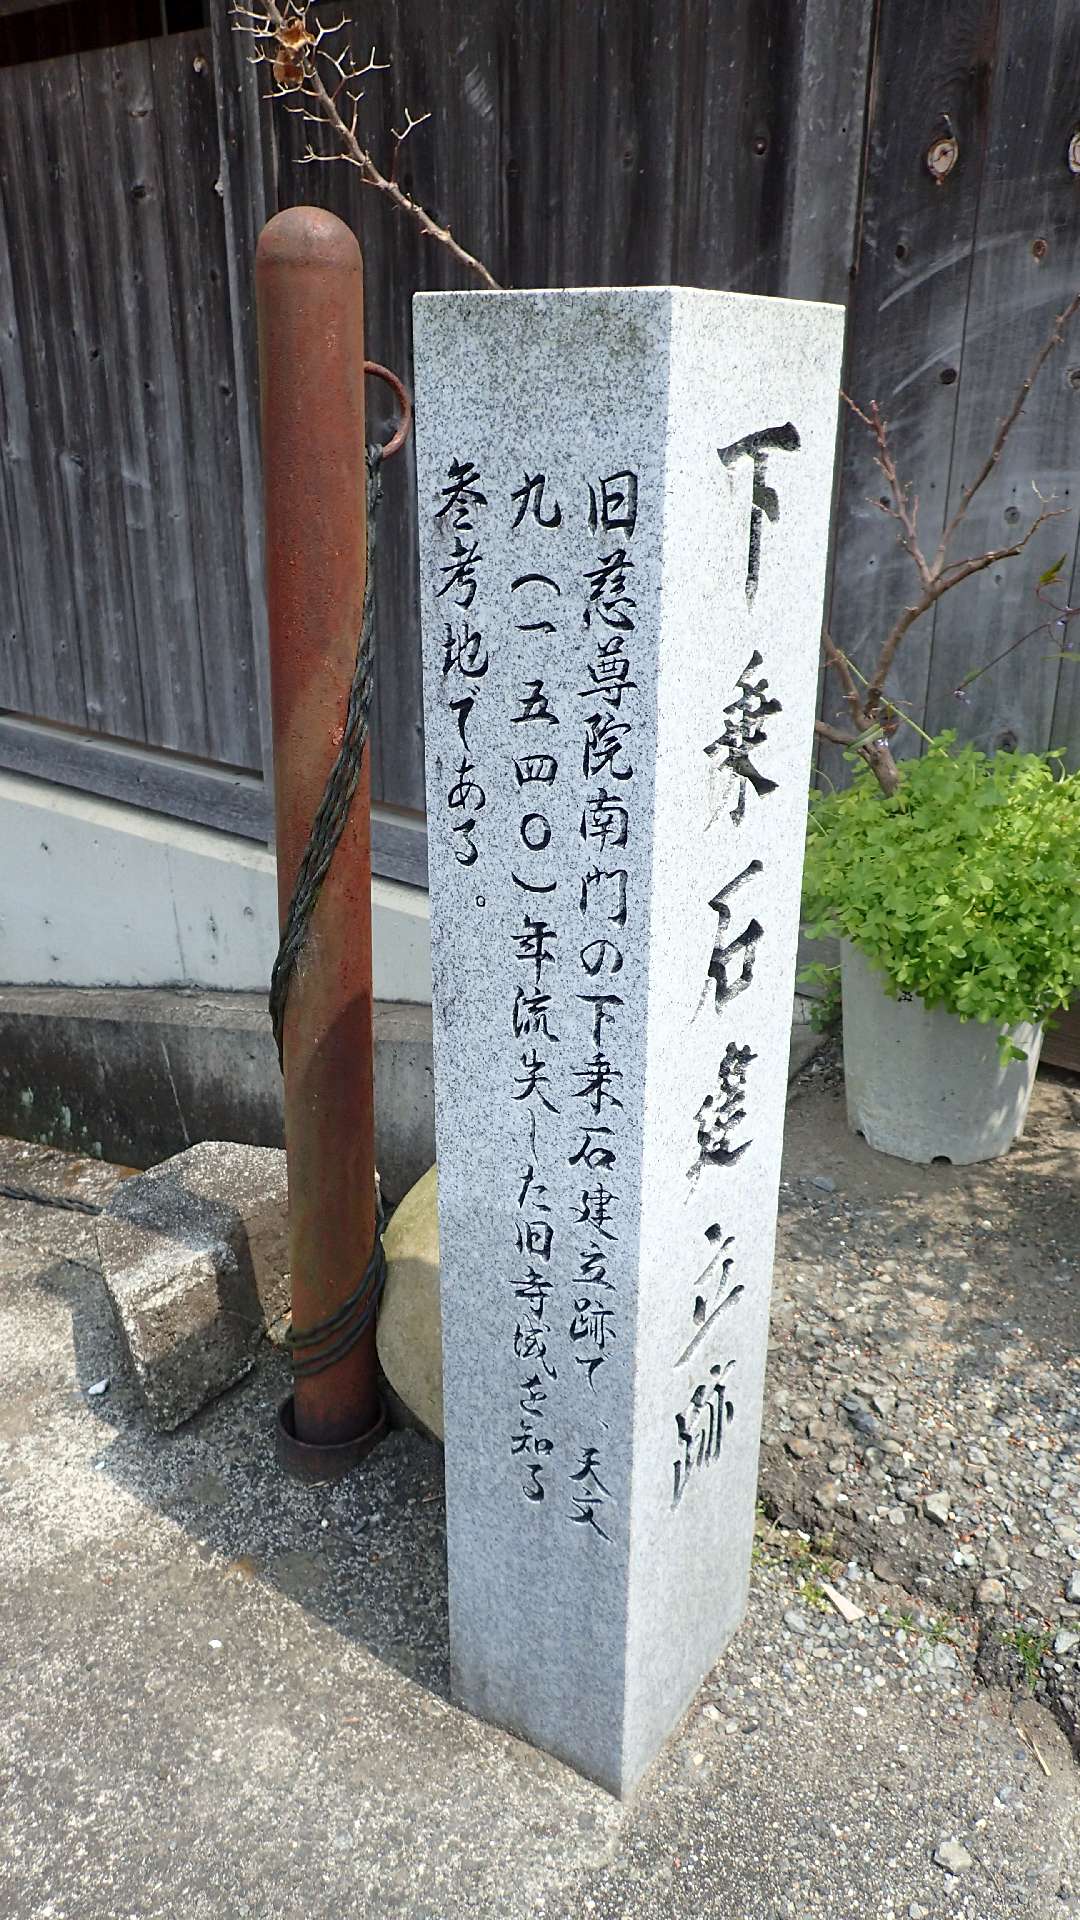 下乗石建立跡
旧慈尊院南門の下乗石建立跡で、天文
九(一五四〇)年流失した旧寺域を知る
参考地である。